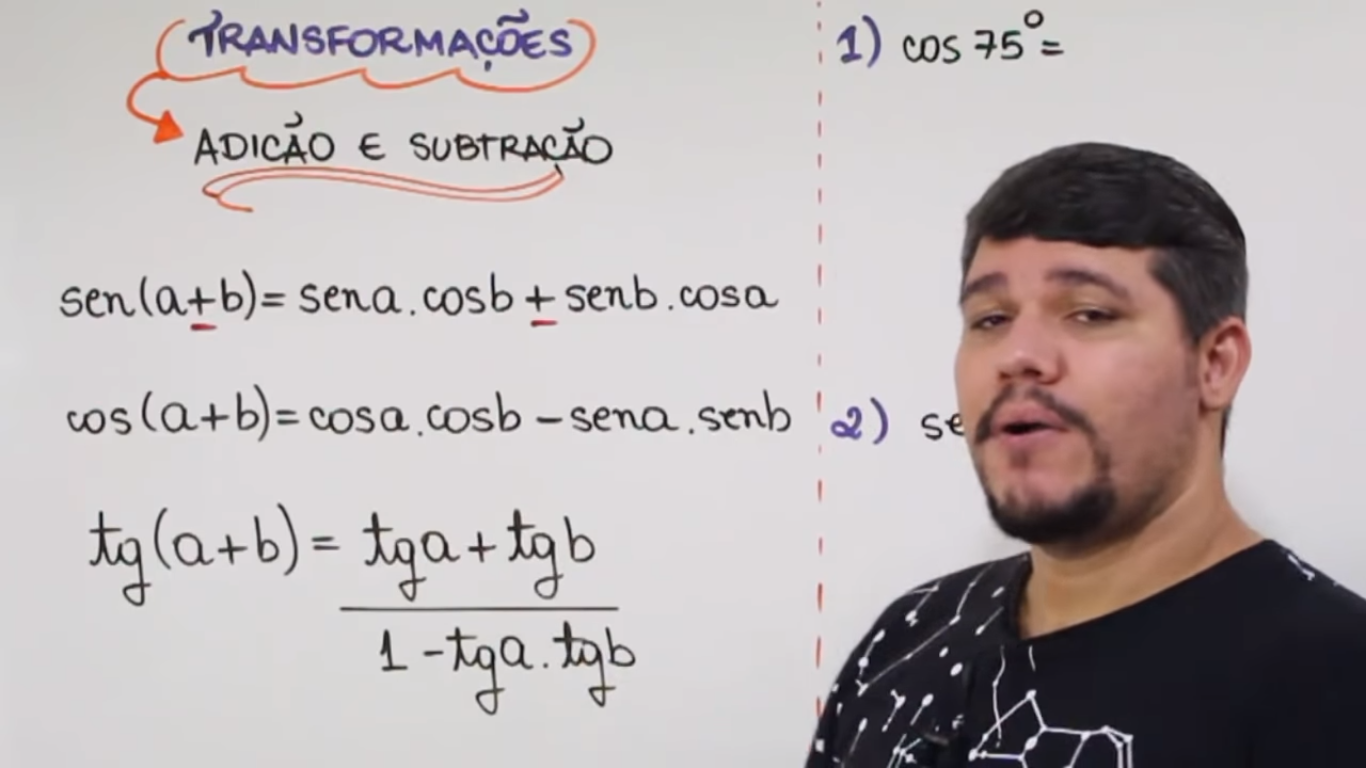 TRANSFORMAÇÕES
ADIÇÃO E SUBTRAÇÃO
sen(a+b)= sena.cosb + senb.cosa
cos(a+b)= cosa.cosb - sena.senb
tg(a+b)= tga + tgb
1 - tga.tgb
1) cos 75°=
2)